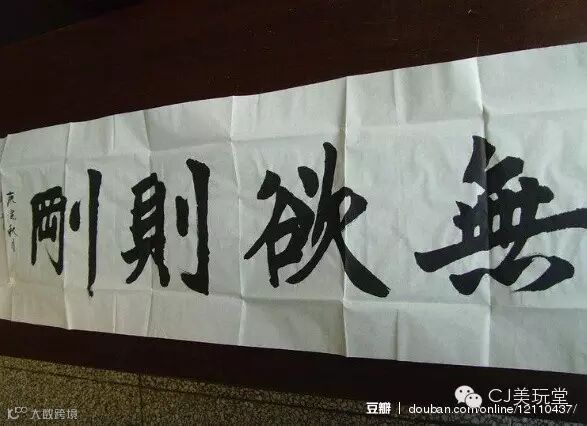 無欲則剛
庚寅秋月
CJ美玩堂
豆瓣 douban.com/online/12110437/
大数跨境